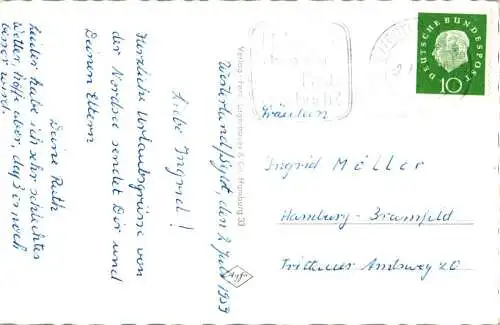 Westerland/Sylt, den 2. Juli 1959
Liebe Ingrid!
Herzliche Urlaubsgrüsse von
der Nordsee sendet Dir und
Deinen Eltern
Deine Ruth
Leider habe ich sehr schlechtes
Wetter, hoffe aber, daß es noch
besser wird.
Verlag Ferd. Lagerbauer & Co. Hamburg 33
Agfa
DEUTSCHE BUNDESPOST
10
Fräulein
Ingrid Möller
Hamburg-Bramfeld
Trittauer Amtsweg 20